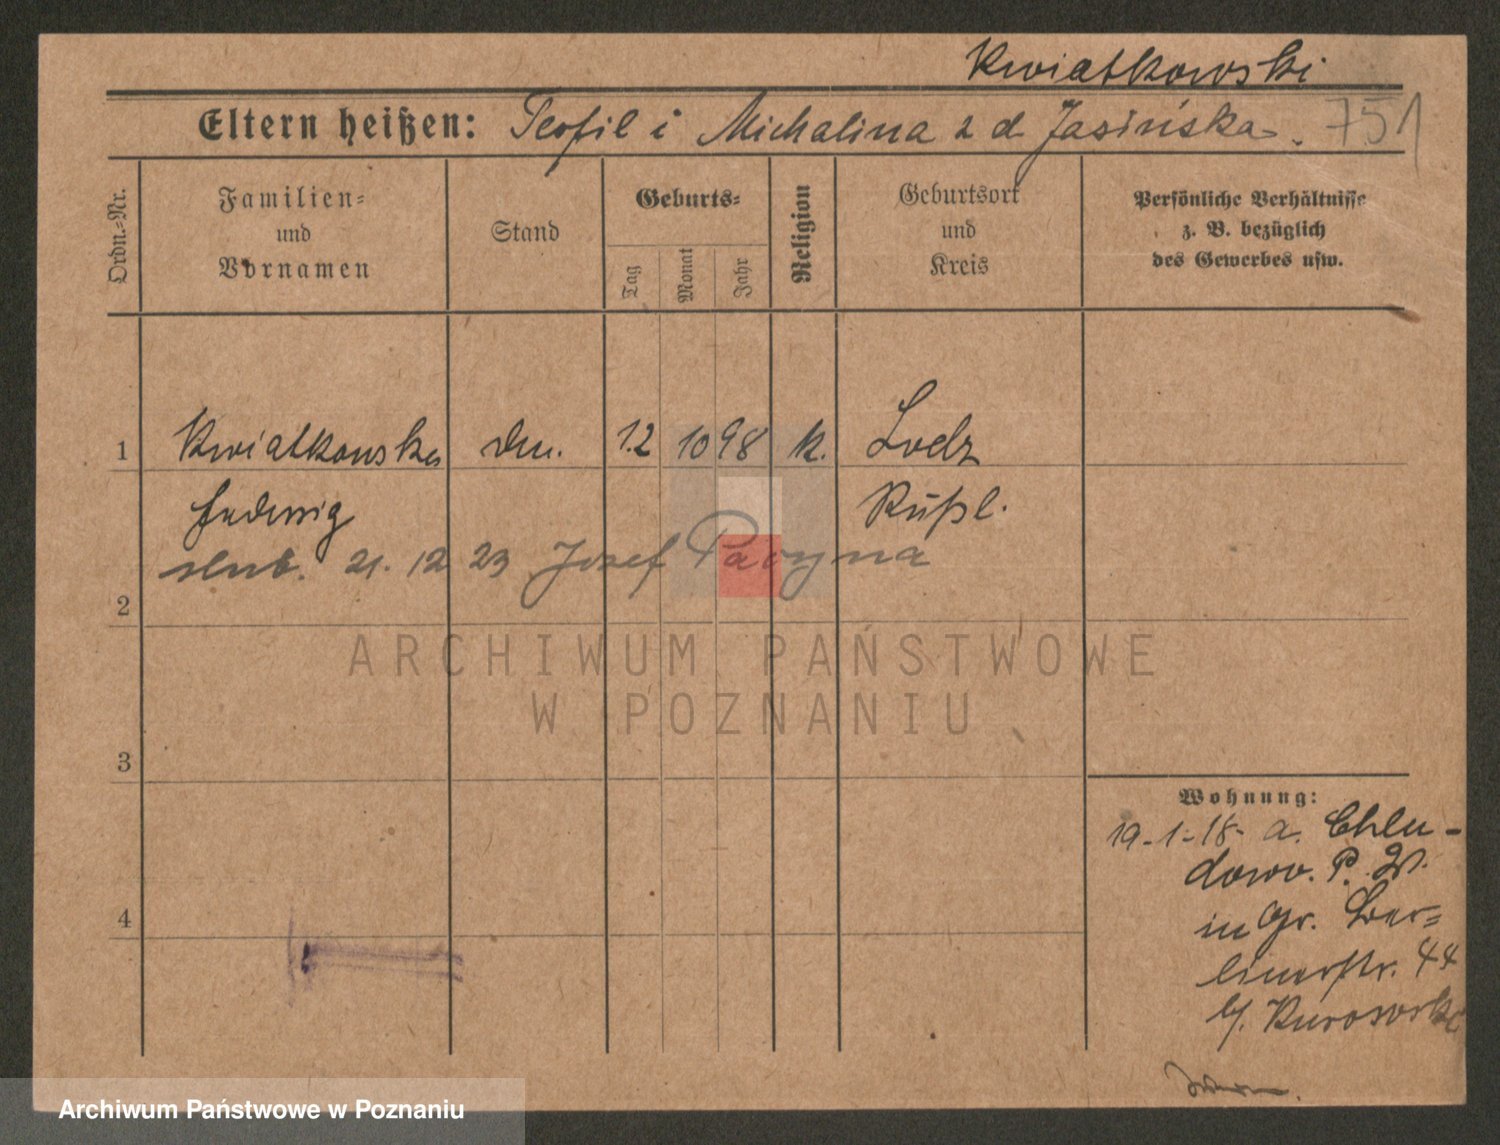 Kwiatkowski
Eltern heißen: Teofil i Michalina z d Jasińska. 751
Ordn.-Nr.
Familien-
und
Vornamen
Stand
Geburts-
Tag
Monat
Jahr
Religion
Geburtsort
und
Kreis
Persönliche Verhältnisse
z. B. bezüglich
des Gewerbes usw.
1 Kwiatkowska 12 10 98 k. Lodz
Hedwig Rußl.
slub. 21. 12 23 Josef Pacyna
2
ARCHIWUM PAŃSTWOWE
W POZNANIU
3
Wohnung:
19-1-18- a. Chlu-
dowo. P. W.
in Gr. Ber=
linerstr. 44
b/.
4
Archiwum Państwowe w Poznaniu